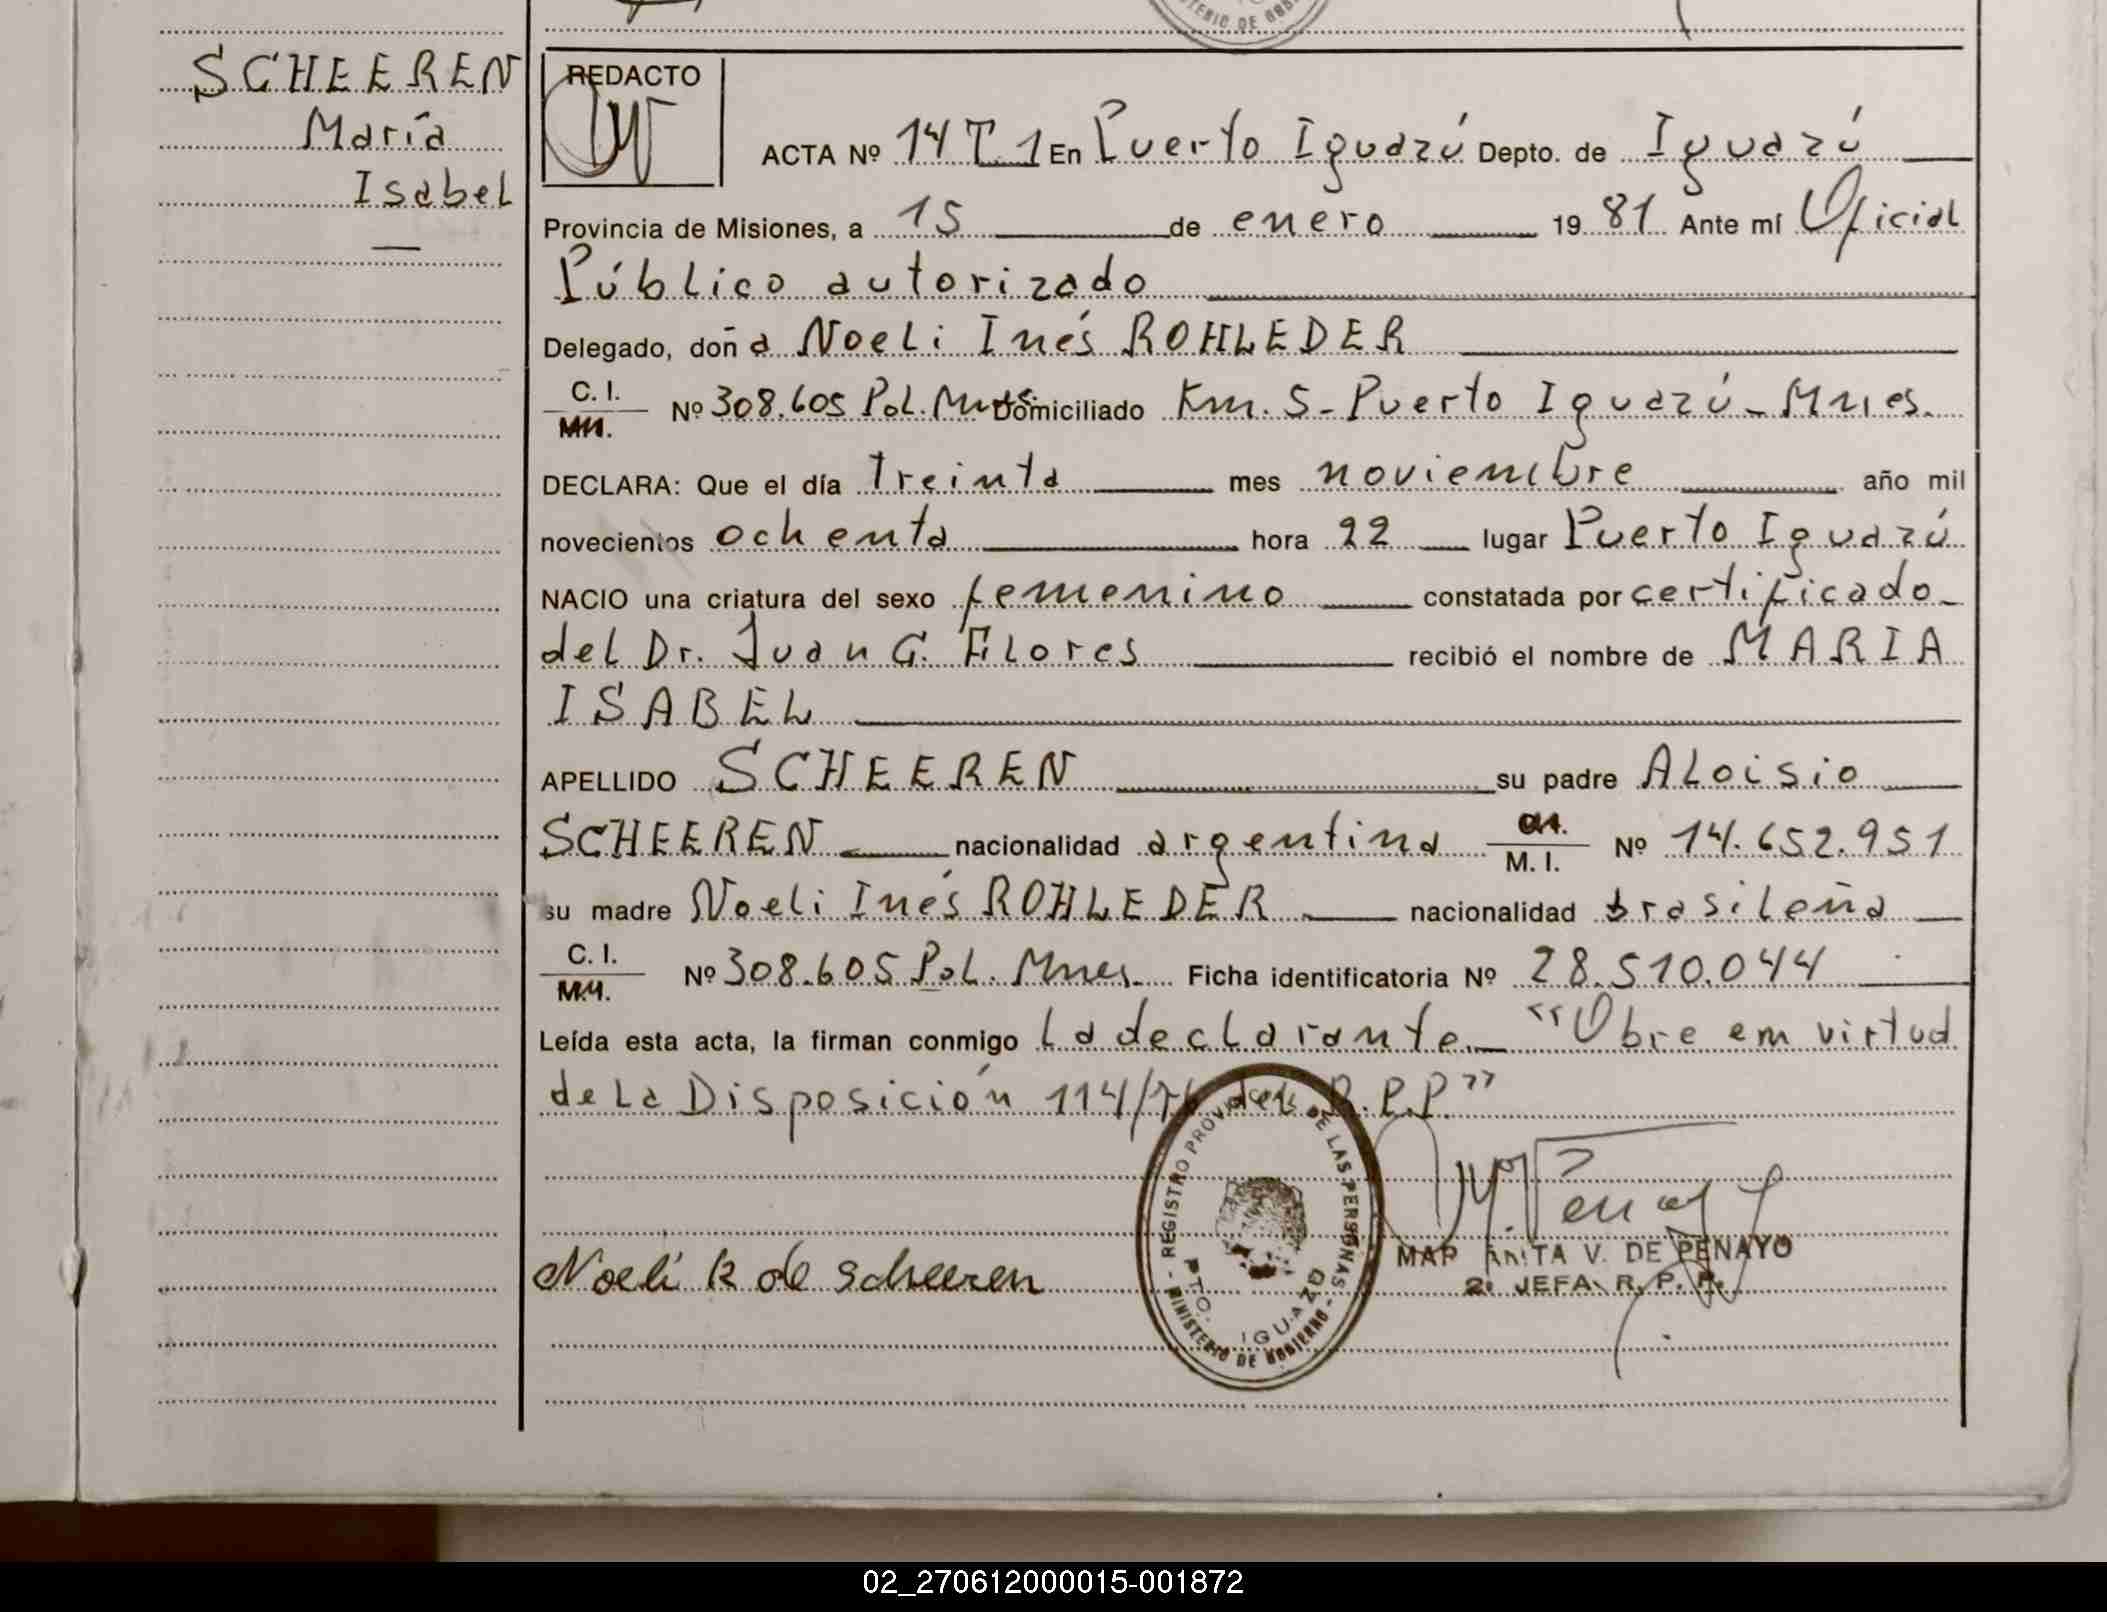 SCHEEREN
María
Isabel
REDACTO
ACTA Nº 14 T 1 En Puerto Iguazú Depto. de Iguazú
Provincia de Misiones, a 15 de enero 1981 Ante mí Oficial
Público autorizado
Delegado, doña Noeli Inés ROHLEDER
C. I. Nº 308.605 Pol. Mnes. Domiciliado Km. 5 - Puerto Iguazú - Mnes.
DECLARA: Que el día treinta mes noviembre año mil
novecientos ochenta hora 22 lugar Puerto Iguazú
NACIO una criatura del sexo femenino constatada por certificado
del Dr. Juan G. Flores recibió el nombre de MARIA
ISABEL
APELLIDO SCHEEREN su padre Aloisio
SCHEEREN nacionalidad argentina M. I. Nº 14.652.951
su madre Noeli Inés ROHLEDER nacionalidad brasileña
C. I. Nº 308.605 Pol. Mnes. Ficha identificatoria Nº 28.510.044
Leída esta acta, la firman conmigo la declarante. "Obre em virtud
de la Disposición 114/76 del R.P.P"
REGISTRO PROVINCIAL DE LAS PERSONAS - MINISTERIO DE GOBIERNO -
PTO. IGUAZU
Noeli R de Scheeren
ANITA V. DE PENAYO
2º JEFA R. P. P.
MINISTERIO DE GOB
02_270612000015-001872